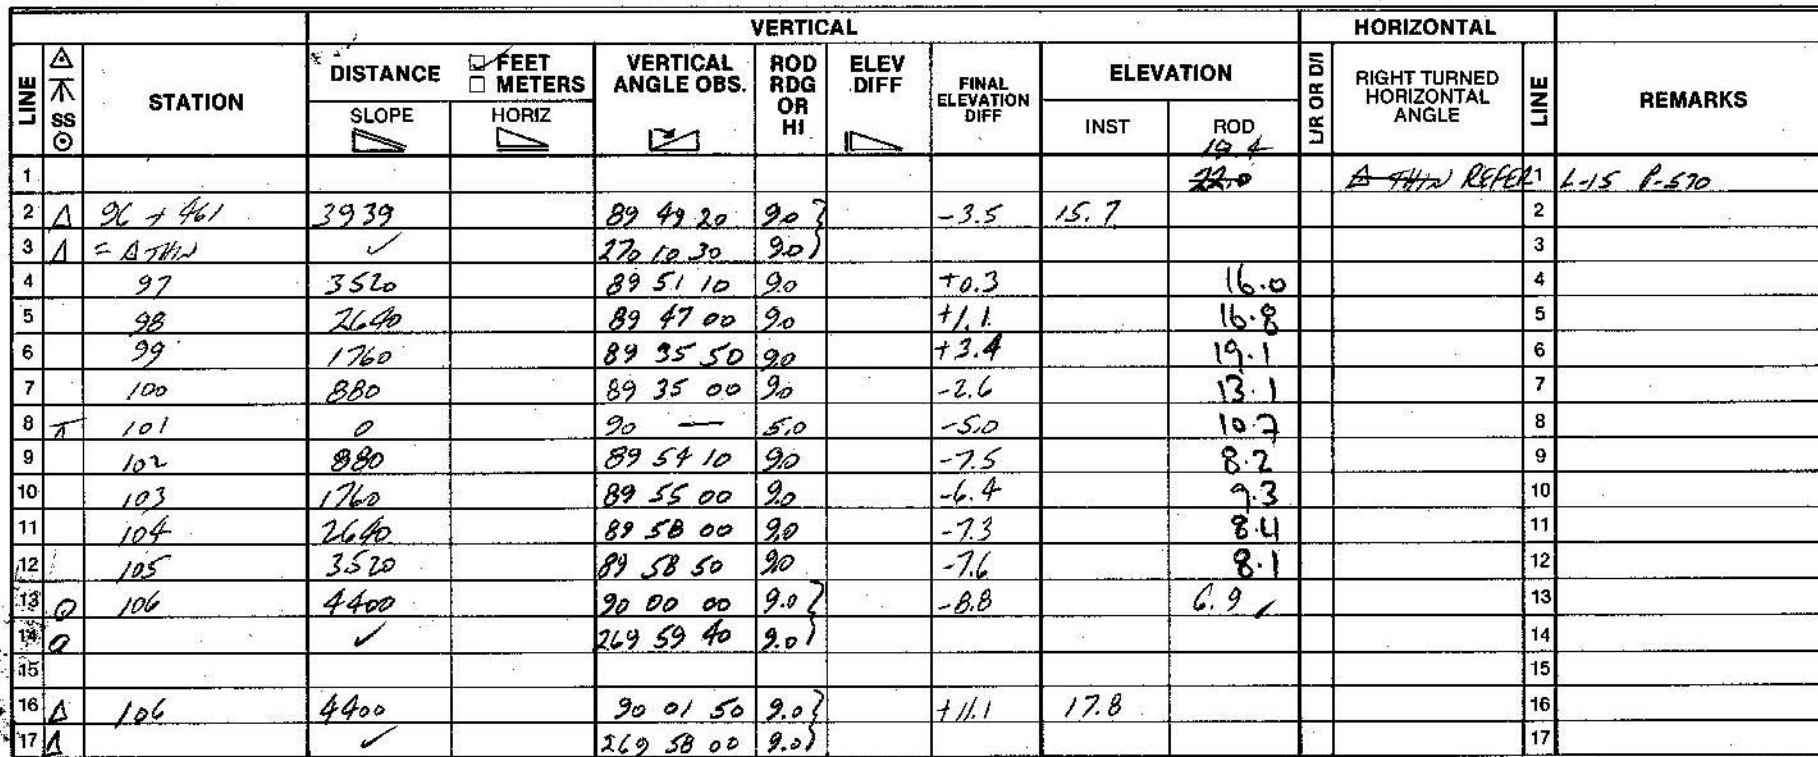 VERTICAL HORIZONTAL
LINE △ ⊼ SS ⊙ STATION DISTANCE ☑ FEET ☐ METERS VERTICAL ANGLE OBS. ROD RDG OR HI ELEV DIFF FINAL ELEVATION DIFF ELEVATION L/R OR D/I RIGHT TURNED HORIZONTAL ANGLE LINE REMARKS
SLOPE HORIZ INST ROD
19.4
1 22.0 △ THIN REFER 1 L-15 P-570
2 △ 96 + 461 3939 89 49 20 9.0 -3.5 15.7 2
3 △ = △ THIN ✓ 270 10 30 9.0 3
4 97 3520 89 51 10 9.0 +0.3 16.0 4
5 98 2640 89 47 00 9.0 +1.1 16.8 5
6 99 1760 89 35 50 9.0 +3.4 19.1 6
7 100 880 89 35 00 9.0 -2.6 13.1 7
8 ⊼ 101 0 90 — 5.0 -5.0 10.7 8
9 102 880 89 54 10 9.0 -7.5 8.2 9
10 103 1760 89 55 00 9.0 -6.4 9.3 10
11 104 2640 89 58 00 9.0 -7.3 8.4 11
12 105 3520 89 58 50 9.0 -7.6 8.1 12
13 ⊙ 106 4400 90 00 00 9.0 -8.8 6.9 ✓ 13
14 ⊙ ✓ 269 59 40 9.0 14
15 15
16 △ 106 4400 90 01 50 9.0 +11.1 17.8 16
17 △ ✓ 269 58 00 9.0 17